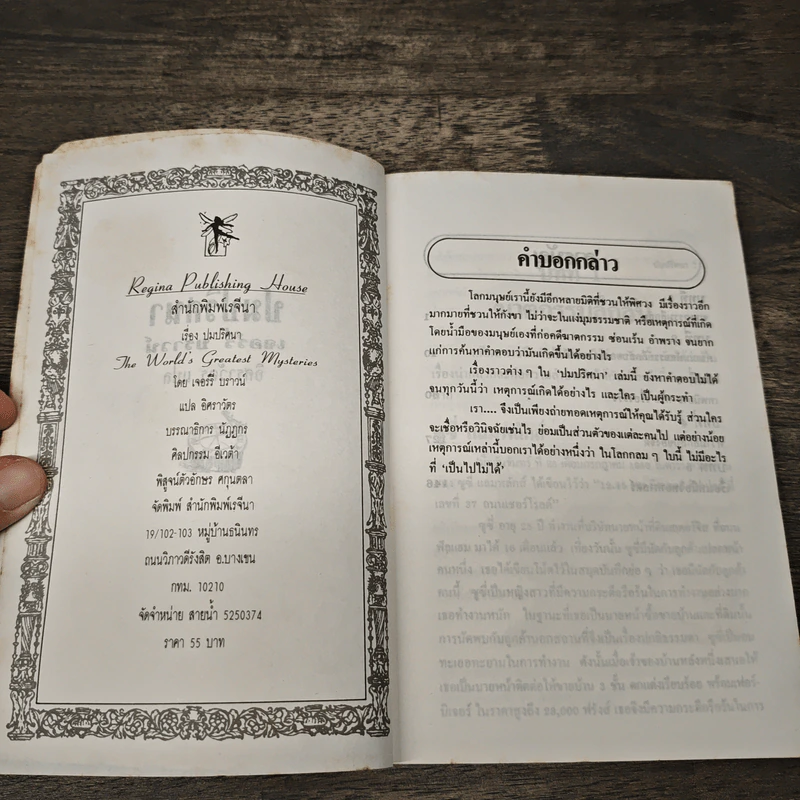 Regina Publishing House
สำนักพิมพ์เรจีนา
เรื่อง ปมปริศนา
The World's Greatest Mysteries
โดย เจอร์รี่ บราวน์
แปล อิศราวัตร
บรรณาธิการ นัฏฐกร
ศิลปกรรม อีเวต้า
พิสูจน์ตัวอักษร ศกุนตลา
จัดพิมพ์ สำนักพิมพ์เรจีนา
19/102-103 หมู่บ้านธนินทร
ถนนวิภาวดีรังสิต อ.บางเขน
กทม. 10210
จัดจำหน่าย สายน้ำ 5250374
ราคา 55 บาท
คำบอกกล่าว
โลกมนุษย์เรานี้ยังมีอีกหลายมิติที่ชวนให้พิศวง มีเรื่องราวอีก
มากมายที่ชวนให้กังขา ไม่ว่าจะในแง่มุมธรรมชาติ หรือเหตุการณ์ที่เกิด
โดยน้ำมือของมนุษย์เองที่ก่อคดีฆาตกรรม ซ่อนเร้น อำพราง จนยาก
แก่การค้นหาคำตอบว่ามันเกิดขึ้นได้อย่างไร
เรื่องราวต่าง ๆ ใน 'ปมปริศนา' เล่มนี้ ยังหาคำตอบไม่ได้
จนทุกวันนี้ว่า เหตุการณ์เกิดได้อย่างไร และใคร เป็นผู้กระทำ
เรา.... จึงเป็นเพียงถ่ายทอดเหตุการณ์ให้คุณได้รับรู้ ส่วนใคร
จะเชื่อหรือวินิจฉัยเช่นไร ย่อมเป็นส่วนตัวของแต่ละคนไป แต่อย่างน้อย
เหตุการณ์เหล่านี้บอกเราได้อย่างหนึ่งว่า ในโลกกลม ๆ ใบนี้ ไม่มีอะไร
ที่ 'เป็นไปไม่ได้'